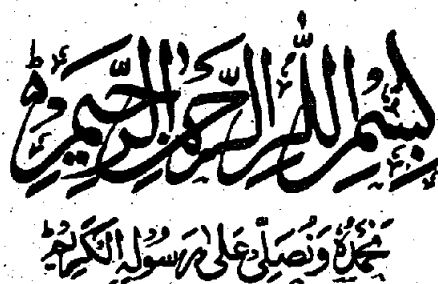 بِسْمِ اللّٰهِ الرَّحْمٰنِ الرَّحِيْمِ
نَحْمَدُهٗ وَنُصَلِّیْ عَلٰی رَسُوْلِہِ الْکَرِیْمِ